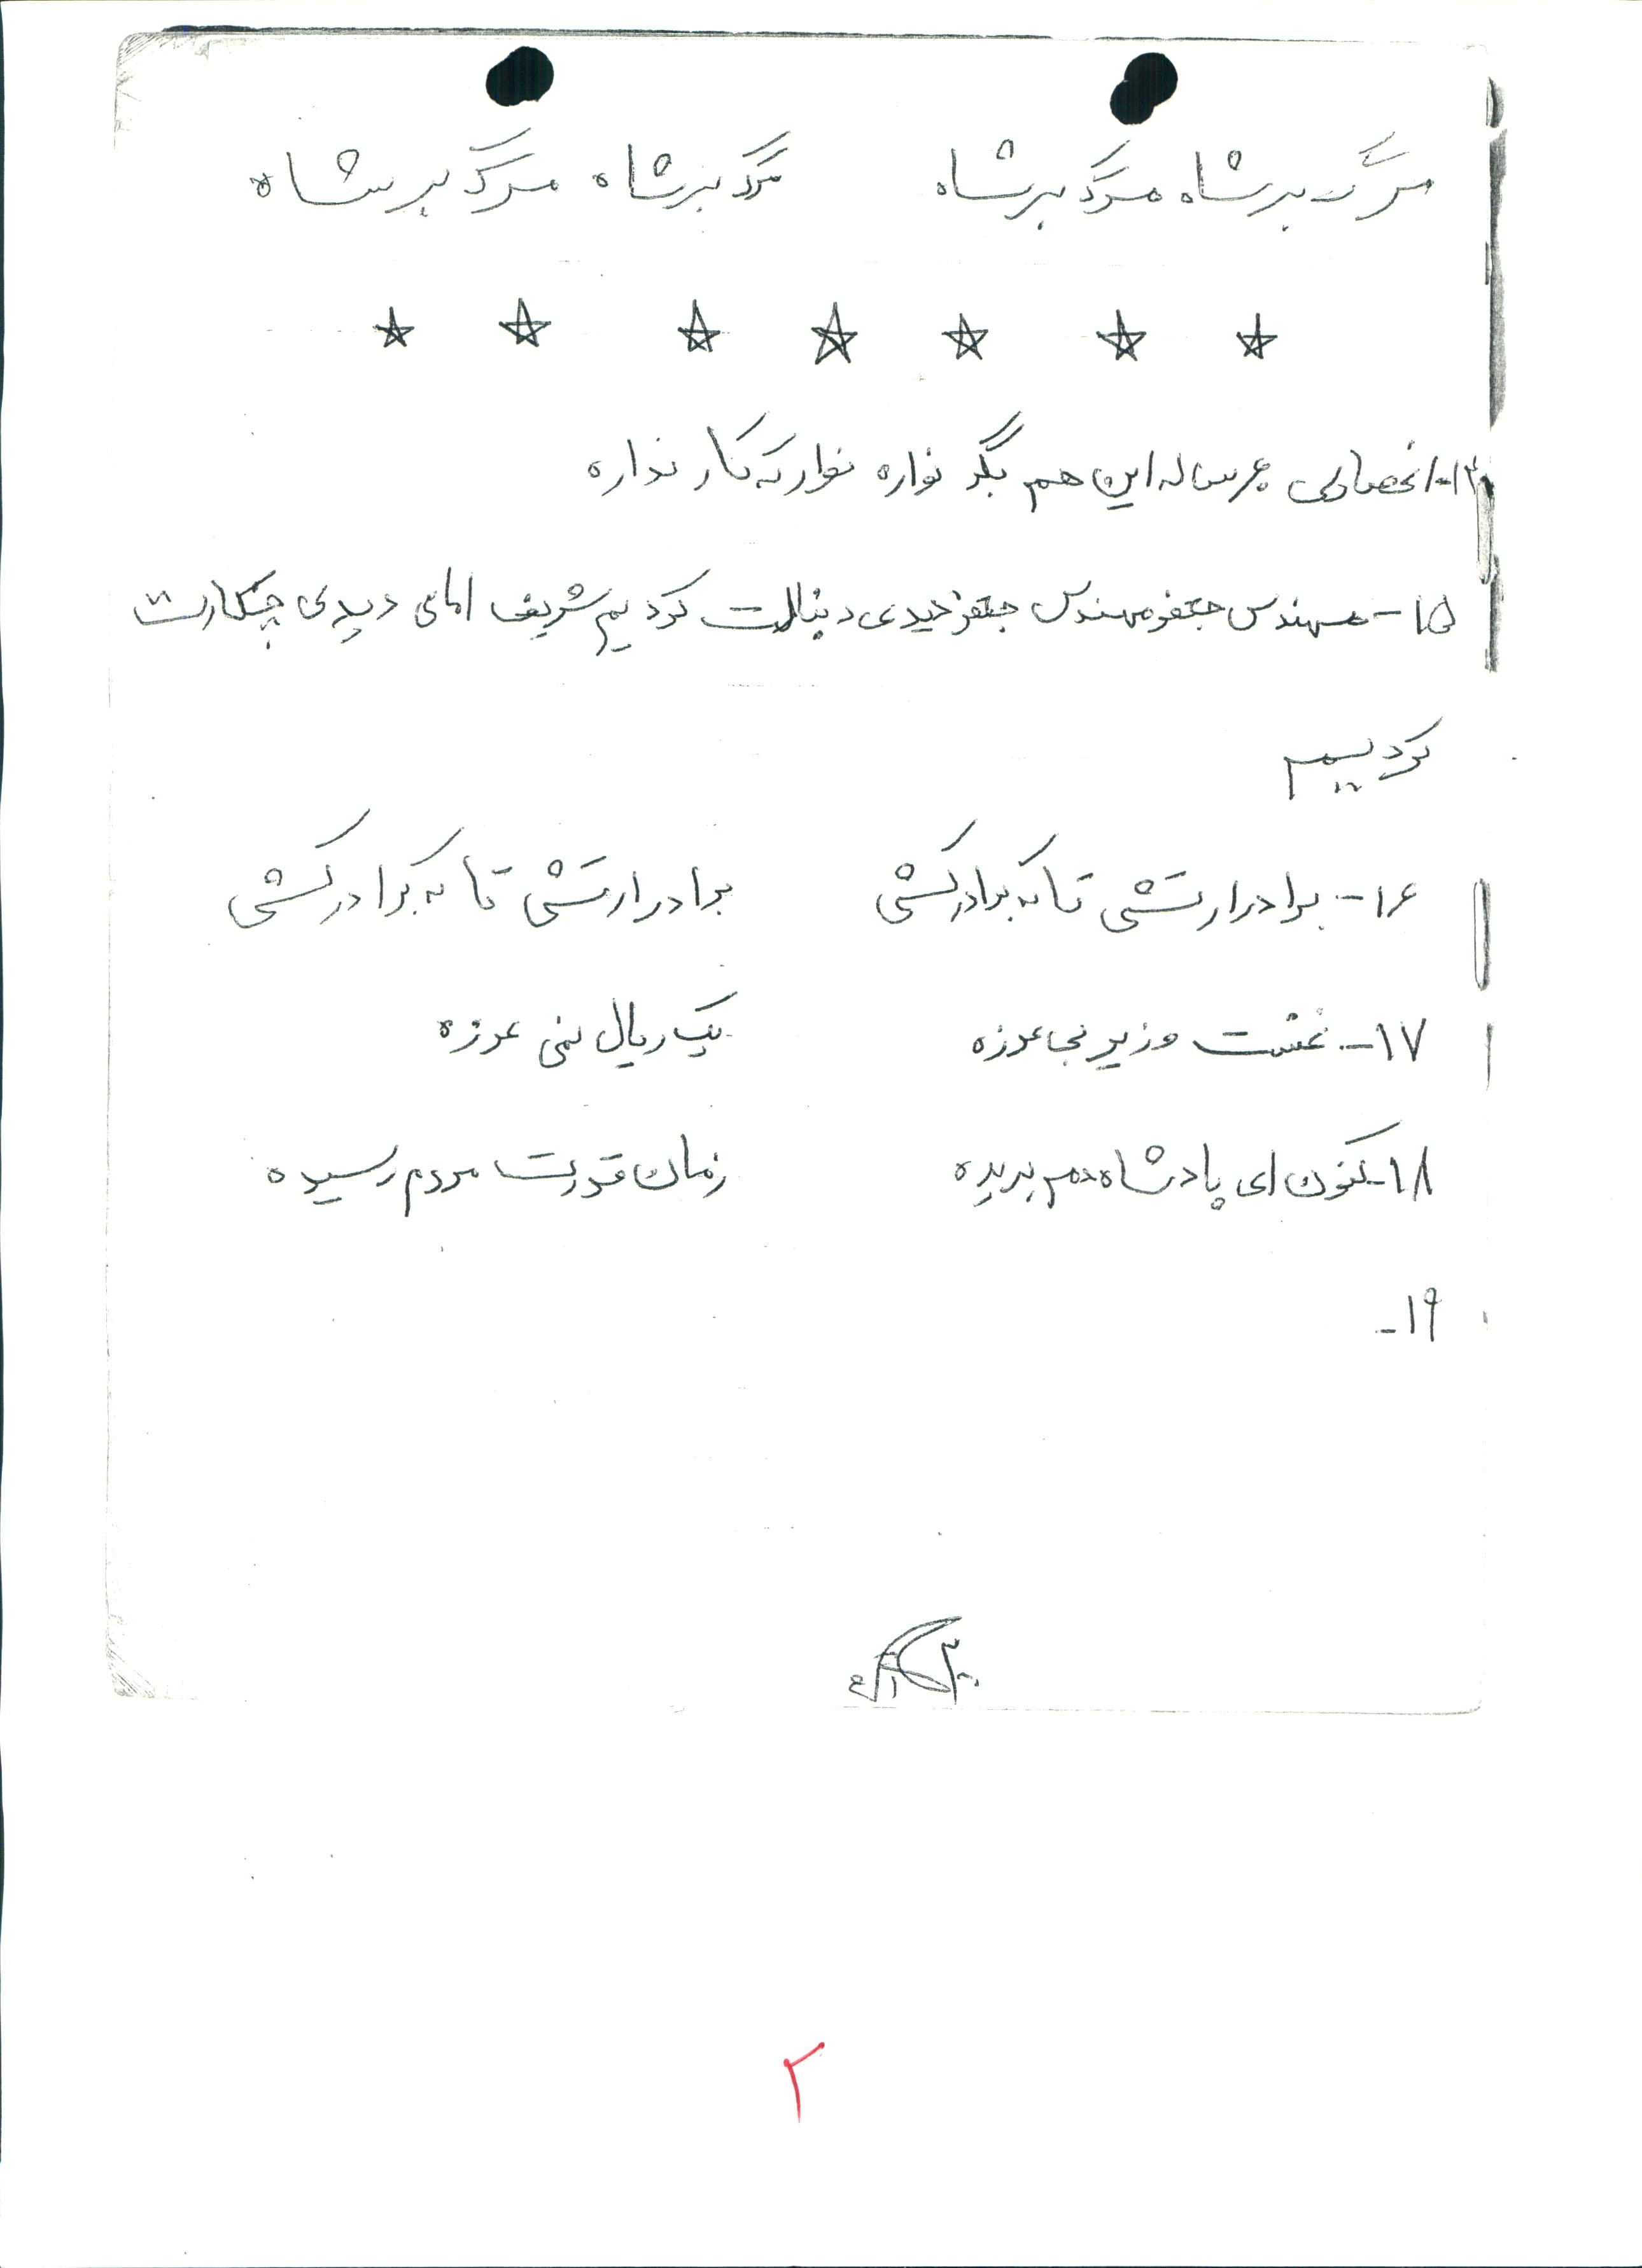 مرگ بر شاه مرگ بر شاه مرگ بر شاه مرگ بر شاه
۱۴- انحصاری هر ساله این هم بگو نواره نوار که کار نداره
۱۵- مهندس جعفر مهندس جعفر دیدی دنبالت کردیم شریف امامی دیدی چکارت
کردییم
۱۶- برادر ارتشی تا که برادرکشی برادر ارتشی تا به برادرکشی
۱۷- نخست وزیر بی عرزه یک ریال نمی عرزه
۱۸- کنون ای پادشاه دم بریده زمان قدرت مردم رسیده
۱۹-
۲